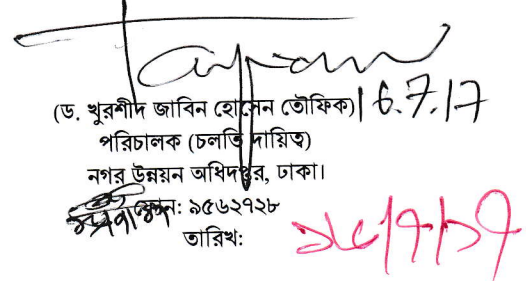 (ড. খুরশীদ জাবিন হোসেন তৌফিক) 16.7.17
পরিচালক (চলতি দায়িত্ব)
নগর উন্নয়ন অধিদপ্তর, ঢাকা।
ফোন: ৯৫৬২৭২৮
তারিখ:
১৬/৭/১৭